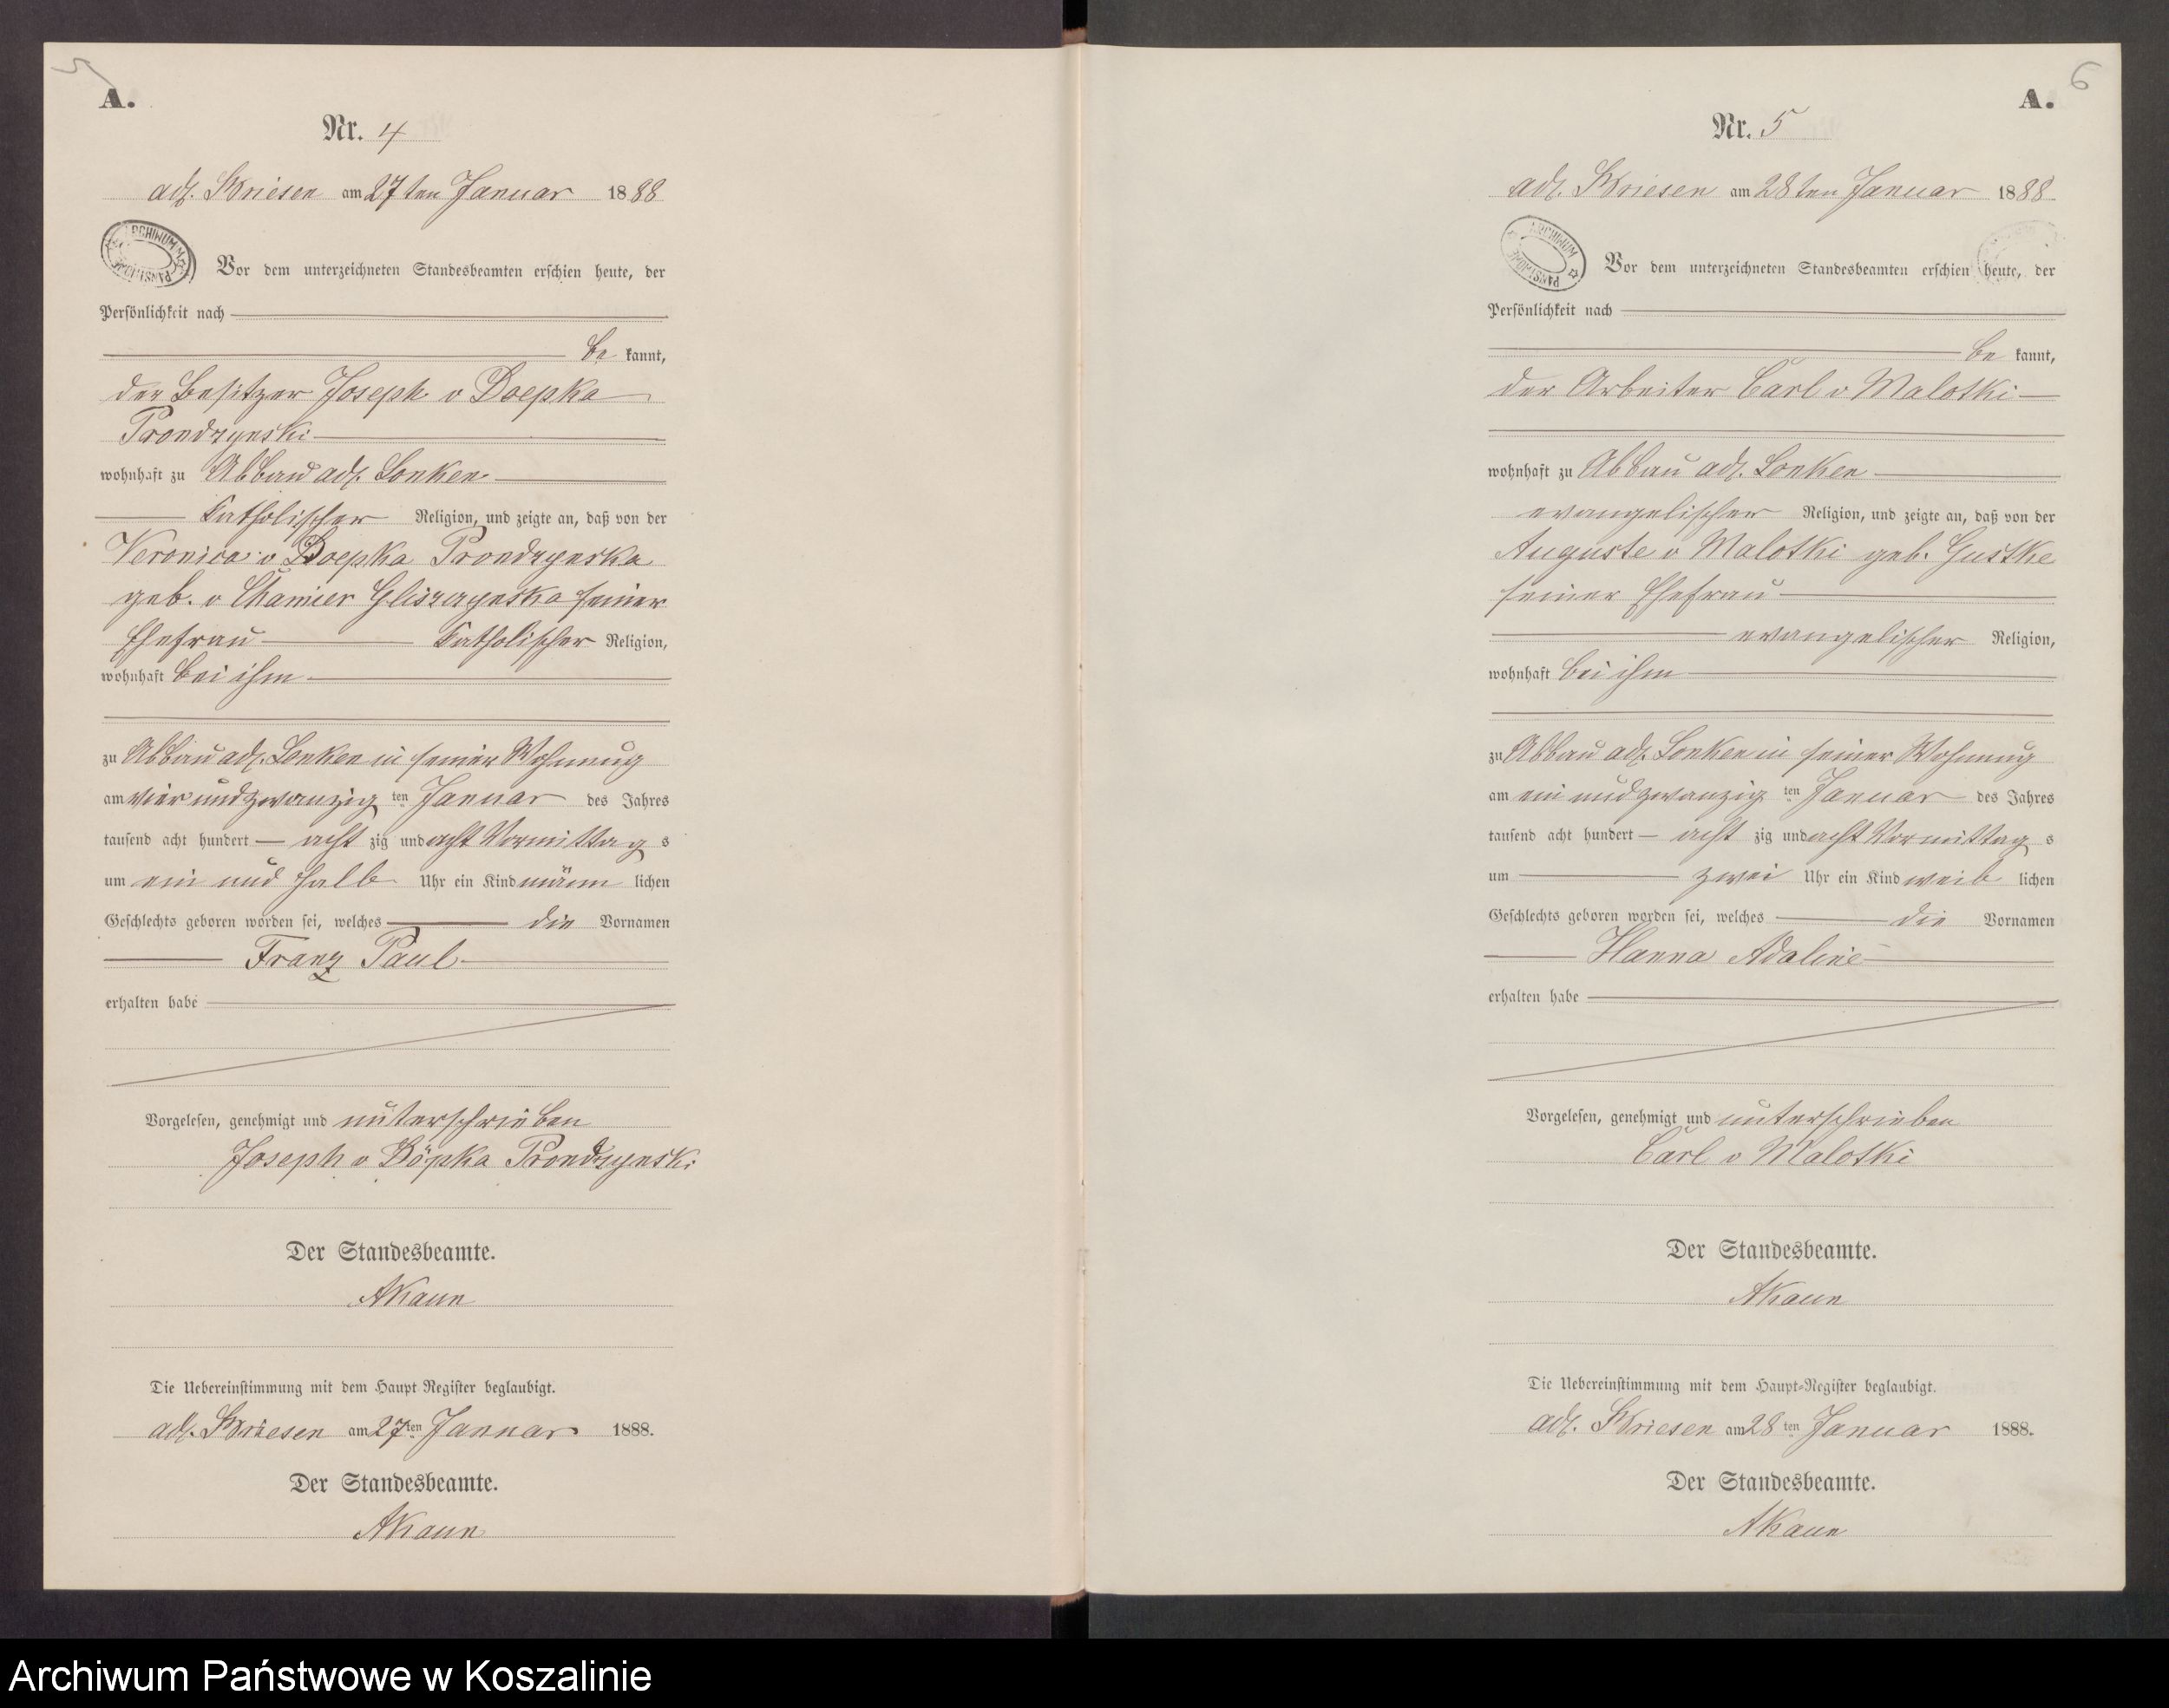 5
A.
Nr. 4
adl. Briesen am 27ten Januar 1888
ARCHIWUM PAŃSTWOWE
Vor dem unterzeichneten Standesbeamten erschien heute, der
Persönlichkeit nach
be kannt,
der Besitzer Joseph v Doepka
Prondzynski
wohnhaft zu Abbau adl. Lonken
katholischer Religion, und zeigte an, daß von der
Veronica v Doepka Prondzynska
geb. v Chamier Gliszczynska seiner
Ehefrau katholischer Religion,
wohnhaft bei ihm
zu Abbau adl. Lonken in seiner Wohnung
am vier und zwanzig ten Januar des Jahres
tausend acht hundert acht zig und acht Vormittag s
um ein und halb Uhr ein Kind männ lichen
Geschlechts geboren worden sei, welches die Vornamen
Franz Paul
erhalten habe
Vorgelesen, genehmigt und unterschrieben
Joseph v Döpka Prondzynski
Der Standesbeamte.
AKaun
Die Uebereinstimmung mit dem Haupt Register beglaubigt.
adl. Briesen am 27ten Januar 1888.
Der Standesbeamte.
AKaun
6
A.
Nr. 5
adl. Briesen am 28ten Januar 1888
ARCHIWUM PAŃSTWOWE
Vor dem unterzeichneten Standesbeamten erschien heute, der
Persönlichkeit nach
be kannt,
der Arbeiter Carl v Malotki
wohnhaft zu Abbau adl. Lonken
evangelischer Religion, und zeigte an, daß von der
Auguste v Malotki geb. Gustke
seiner Ehefrau
evangelischer Religion,
wohnhaft bei ihm
zu Abbau adl. Lonken in seiner Wohnung
am ein und zwanzig ten Januar des Jahres
tausend acht hundert acht zig und acht Vormittag s
um zwei Uhr ein Kind weib lichen
Geschlechts geboren worden sei, welches die Vornamen
Hanna Adaline
erhalten habe
Vorgelesen, genehmigt und unterschrieben
Carl v Malotki
Der Standesbeamte.
AKaun
Die Uebereinstimmung mit dem Haupt-Register beglaubigt.
adl. Briesen am 28ten Januar 1888.
Der Standesbeamte.
AKaun
Archiwum Państwowe w Koszalinie